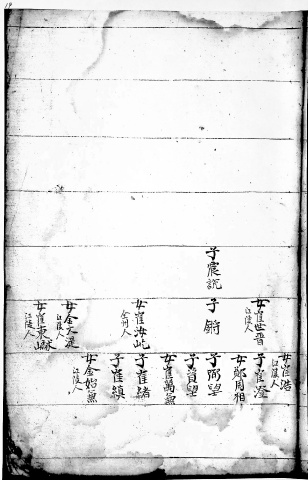 子震說
女崔世晋
江陵人
子鏘
女崔汝屹
全州人
女金大涯
江陵人
女崔東麟
江陵人
女崔浩
江陵人
子崔澄
女鄭周相
子弼望
子首望
女崔萬
子崔緒
子崔縝
女金始
江陵人
19